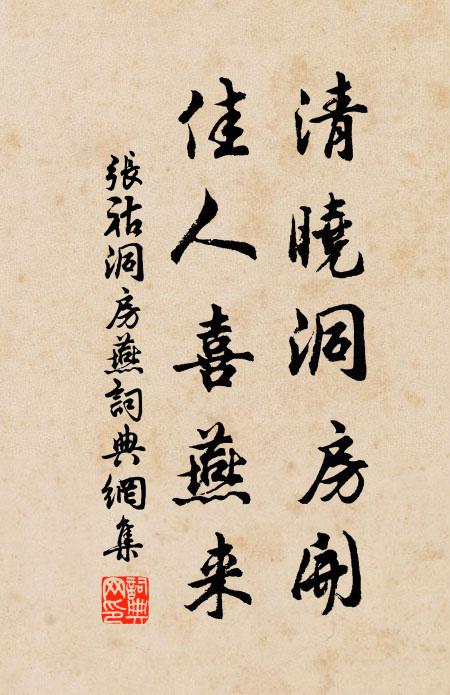 清曉洞房開
佳人喜燕来
張祜洞房燕詞典網集
詞典網印